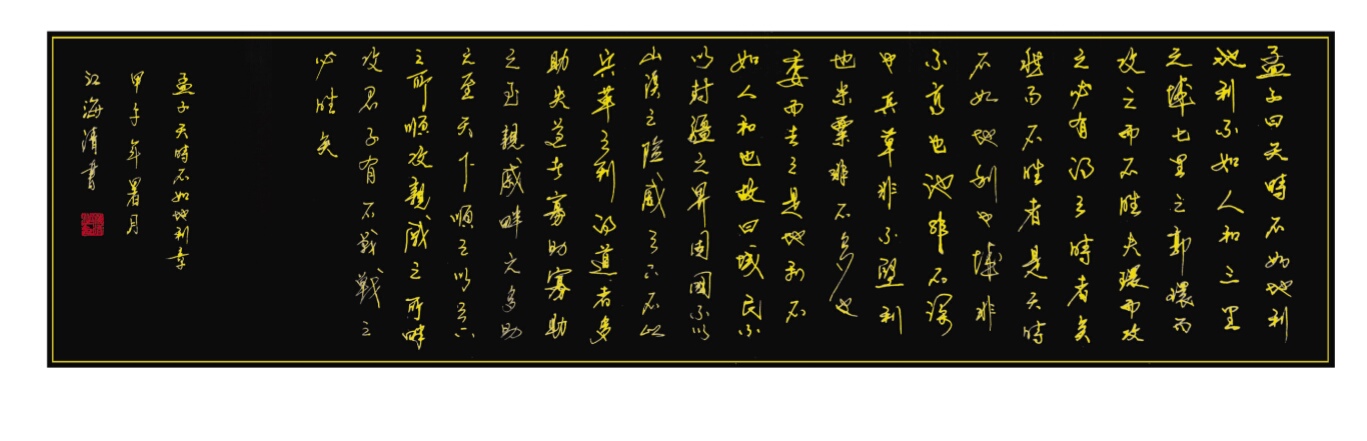 孟子曰天時不如地利
地利不如人和三里
之城七里之郭環而
攻之而不勝夫環而攻
之必有得天時者矣
然而不勝者是天時
不如地利也城非
不高也池非不深
也兵革非不堅利
也米粟非不多也
委而去之是地利不
如人和也故曰域民不
以封疆之界固國不以
山溪之險威天下不以
兵革之利得道者多
助失道者寡助寡助
之至親戚畔之多助
之至天下順之以天下
之所順攻親戚之所畔
故君子有不戰戰之
必勝矣
孟子天時不如地利章
甲午年署月
江海清書